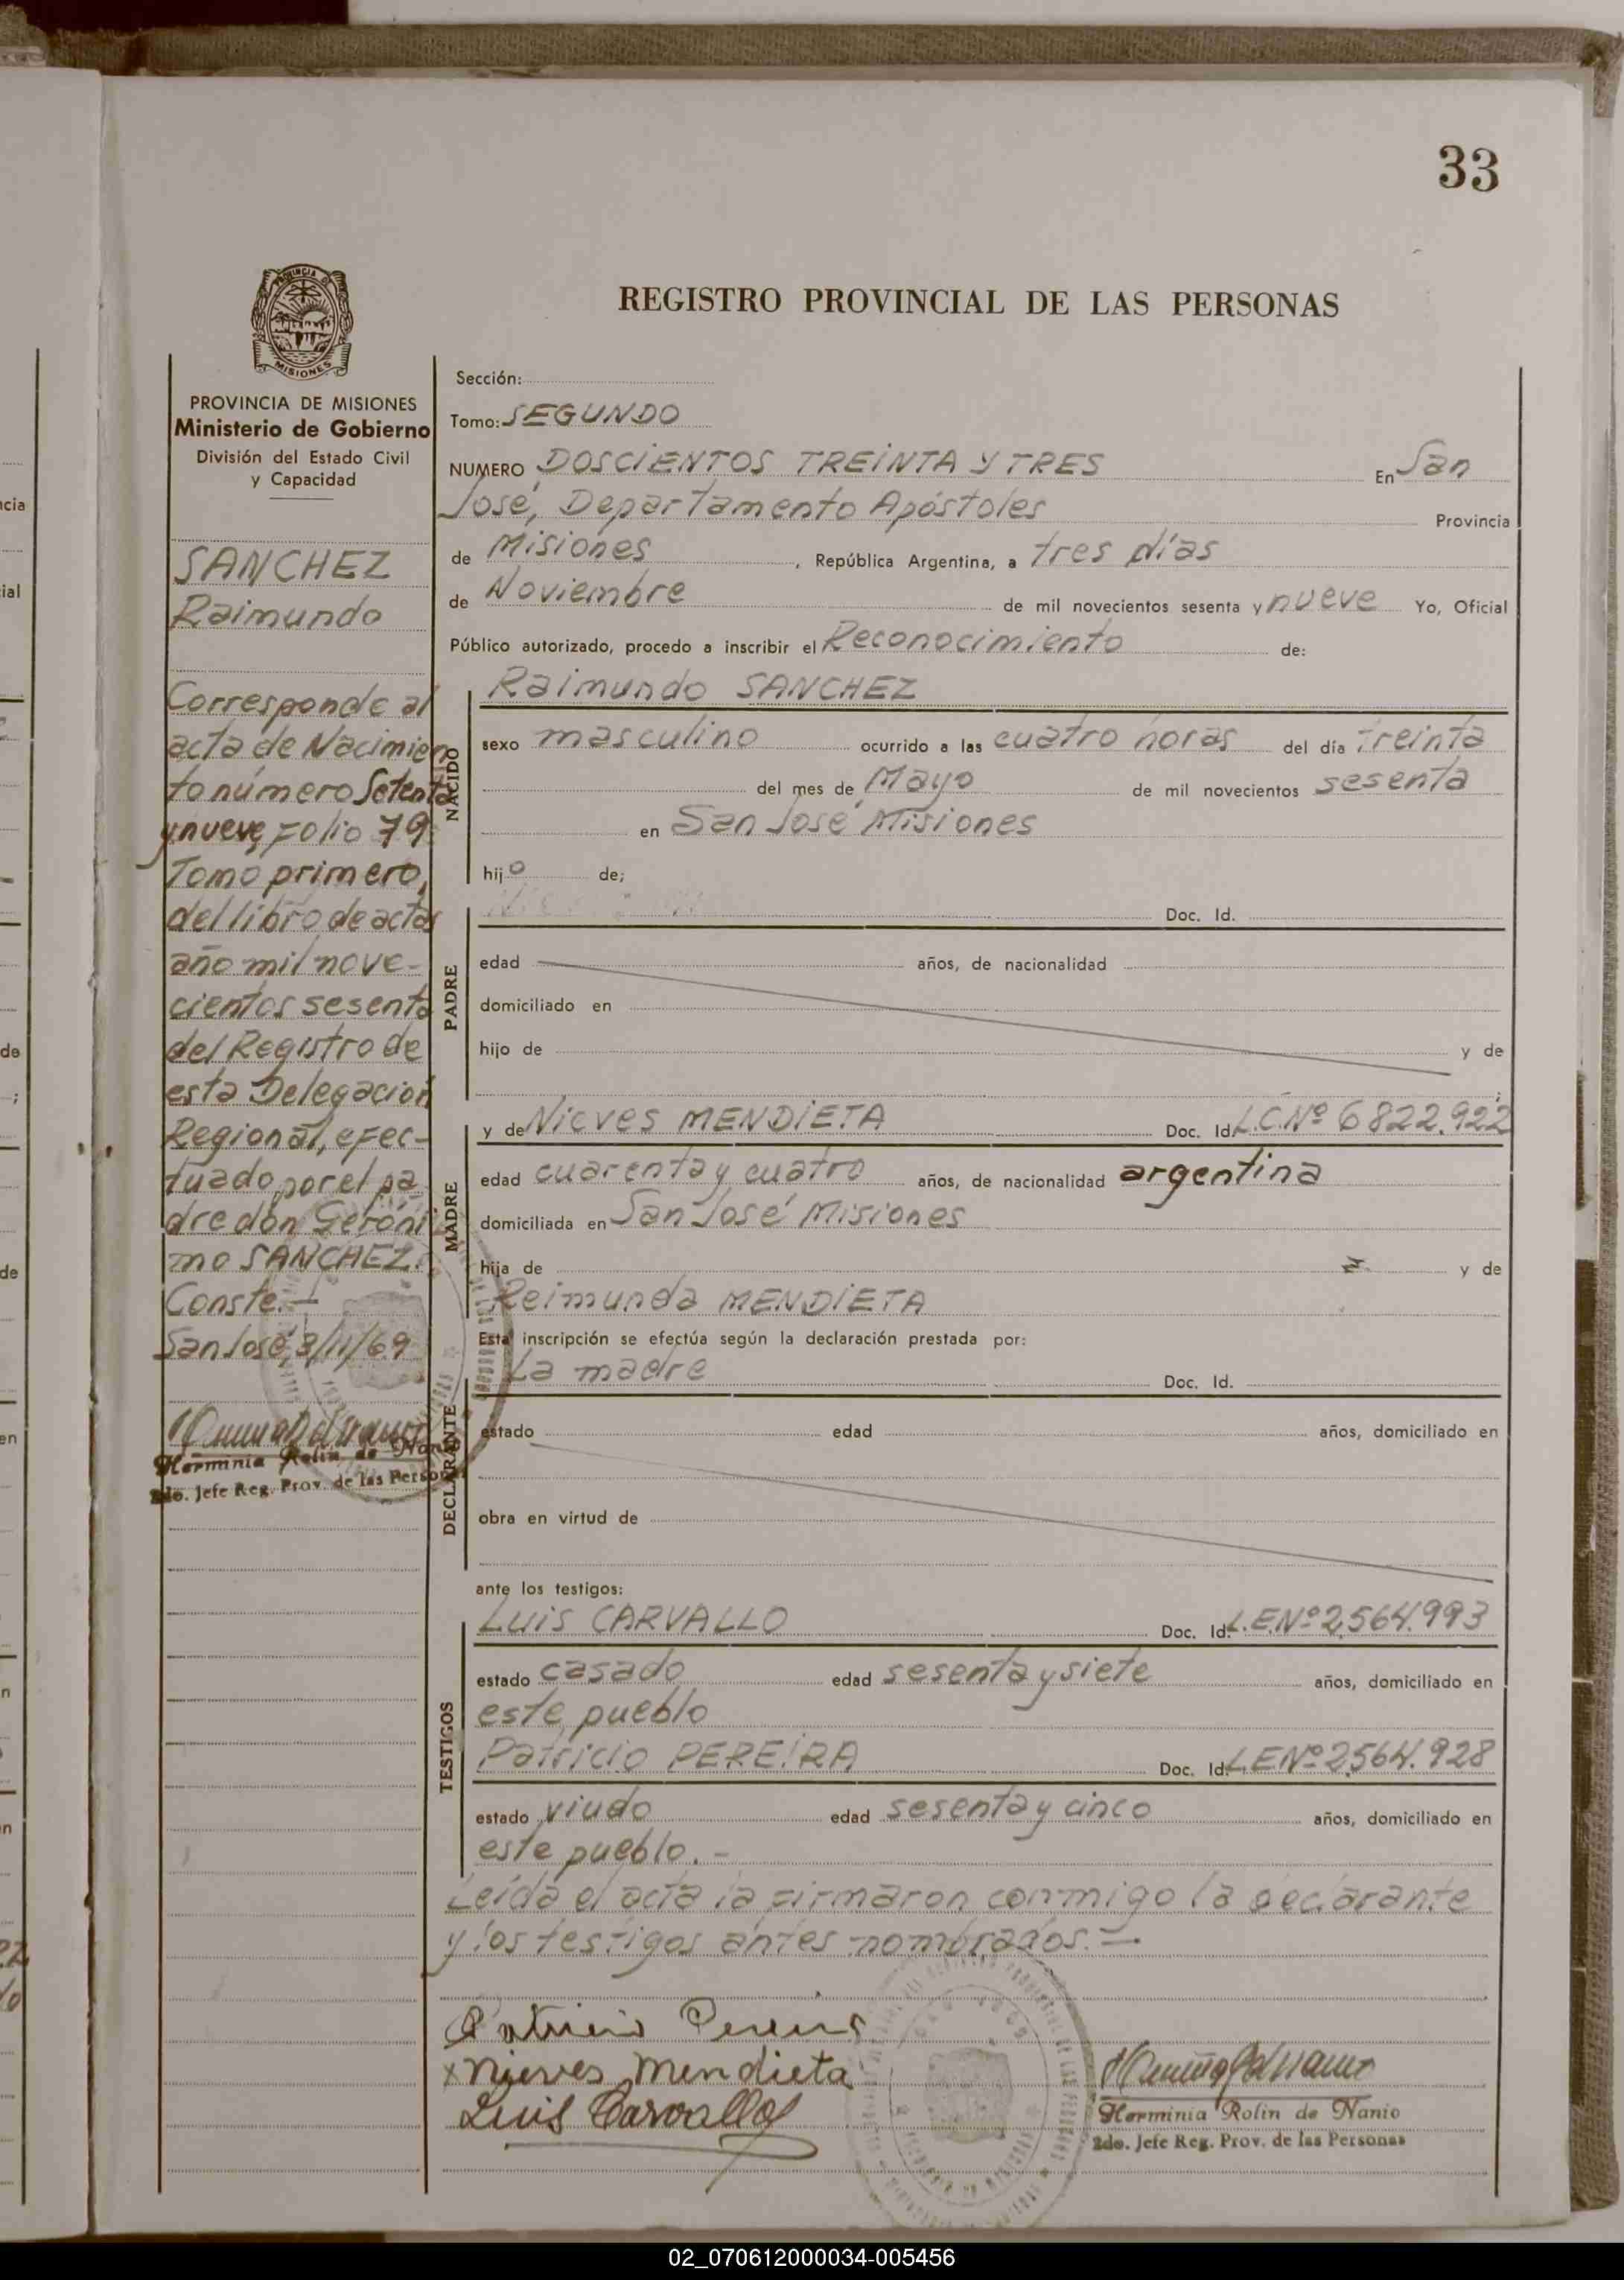 33
REGISTRO PROVINCIAL DE LAS PERSONAS
PROVINCIA DE
MISIONES
PROVINCIA DE MISIONES
Ministerio de Gobierno
División del Estado Civil
y Capacidad
SANCHEZ
Raimundo
Corresponde al
acta de Nacimien
to número Setenta
y nueve, Folio 79
Tomo primero,
del libro de actas
año mil nove-
cientos sesenta
del Registro de
esta Delegación
Regional, efec-
tuado por el pa
dre don Geróni
mo SANCHEZ.
Conste.-
San José, 3/11/69
Herminia Rolin de Nanio
2do. Jefe Reg. Prov. de las Personas
Sección:
Tomo: SEGUNDO
NUMERO DOSCIENTOS TREINTA Y TRES En San
José, Departamento Apóstoles Provincia
de Misiones, República Argentina, a tres días
de Noviembre de mil novecientos sesenta y nueve Yo, Oficial
Público autorizado, procedo a inscribir el Reconocimiento de:
NACIDO
Raimundo SANCHEZ
sexo masculino ocurrido a las cuatro horas del día treinta
del mes de Mayo de mil novecientos sesenta
en San José Misiones
hijo de;
PADRE
Doc. Id.
edad años, de nacionalidad
domiciliado en
hijo de y de
;
MADRE
y de Nieves MENDIETA Doc. Id. L.C.Nº 6822.922
edad cuarenta y cuatro años, de nacionalidad argentina
domiciliada en San José Misiones
hija de y de
Reimunda MENDIETA
Esta inscripción se efectúa según la declaración prestada por:
DECLARANTE
La madre Doc. Id.
estado edad años, domiciliado en
obra en virtud de
ante los testigos:
TESTIGOS
Luis CARVALLO Doc. Id. L.E.Nº 2,564.993
estado casado edad sesenta y siete años, domiciliado en
este pueblo
Patricio PEREIRA Doc. Id. L.E.Nº 2,564.928
estado viudo edad sesenta y cinco años, domiciliado en
este pueblo.-
Leída el acta la firmaron conmigo la declarante
y los testigos antes nombrados.-
Patricio Pereira
x Nieves Mendieta
Luis Carvallo
Herminia Rolin de Nanio
2do. Jefe Reg. Prov. de las Personas
02_070612000034-005456